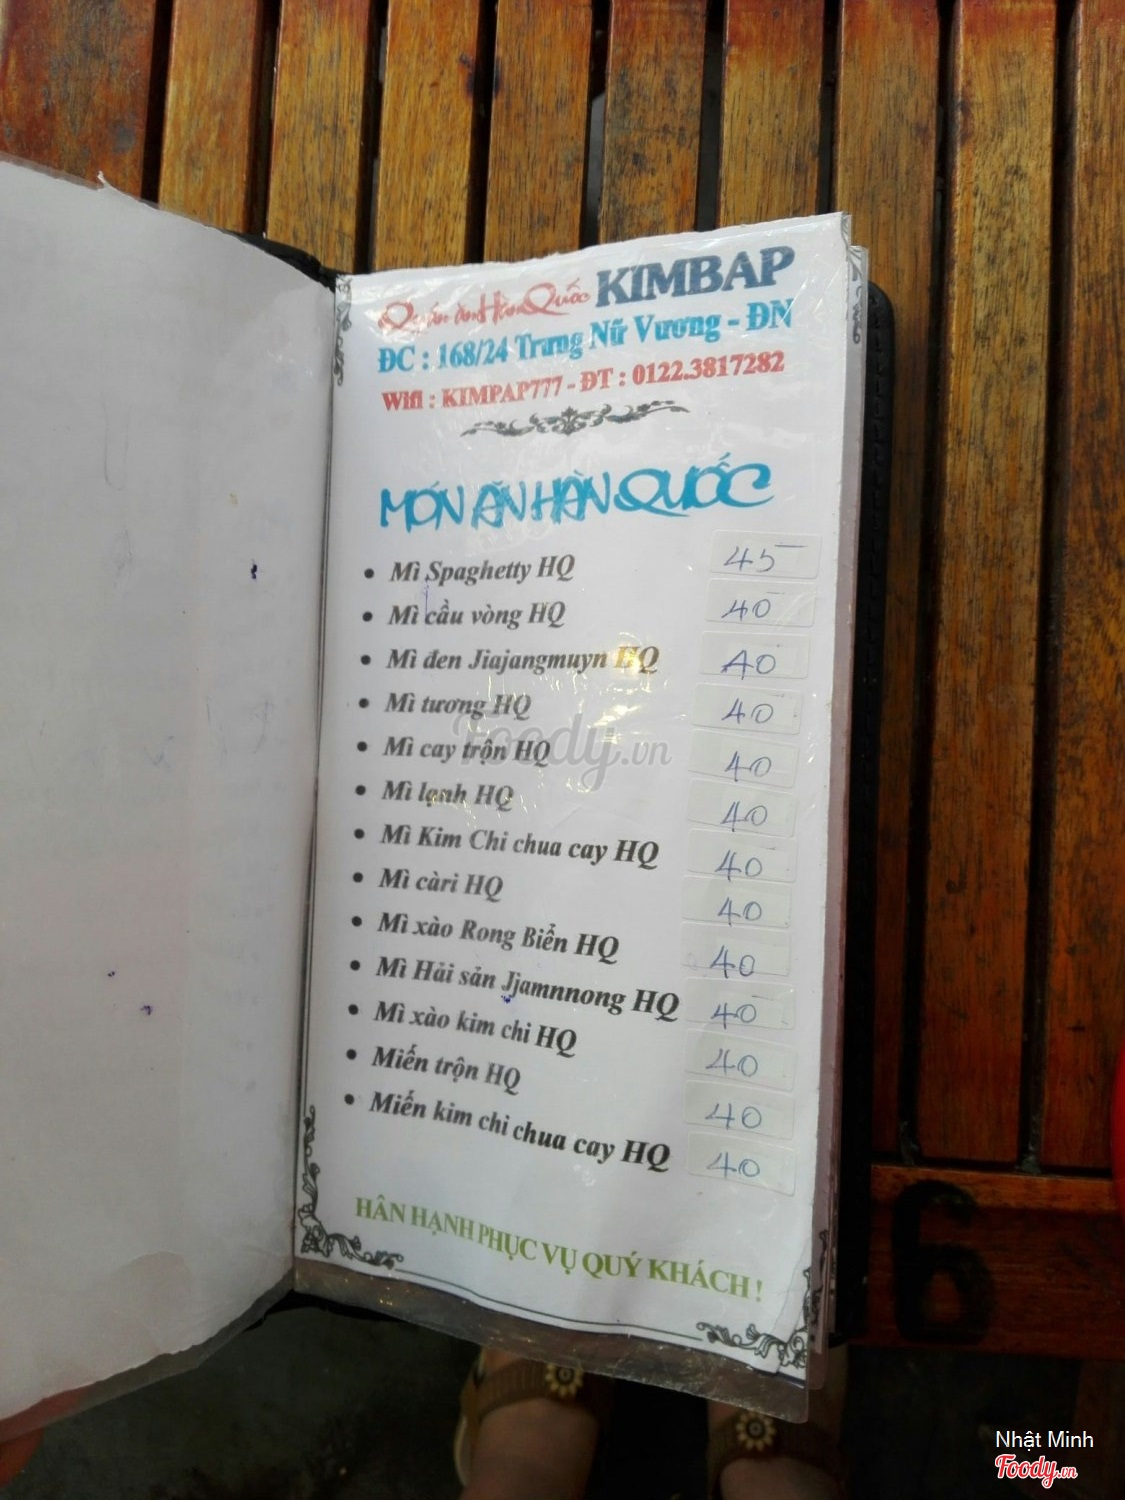 Quán ăn Hàn Quốc KIMBAP
ĐC : 168/24 Trưng Nữ Vương - ĐN
Wifi : KIMPAP777 - ĐT : 0122.3817282
MÓN ĂN HÀN QUỐC
• Mì Spaghetty HQ 45
• Mì cầu vòng HQ 40
• Mì đen Jiajangmuyn HQ 40
• Mì tương HQ 40
• Mì cay trộn HQ 40
• Mì lạnh HQ 40
• Mì Kim Chi chua cay HQ 40
• Mì càri HQ 40
• Mì xào Rong Biển HQ 40
• Mì Hải sản Jjamnnong HQ 40
• Mì xào kim chi HQ 40
• Miến trộn HQ 40
• Miến kim chi chua cay HQ 40
HÂN HẠNH PHỤC VỤ QUÝ KHÁCH !
Foody.vn
6
Nhật Minh
Foody.vn